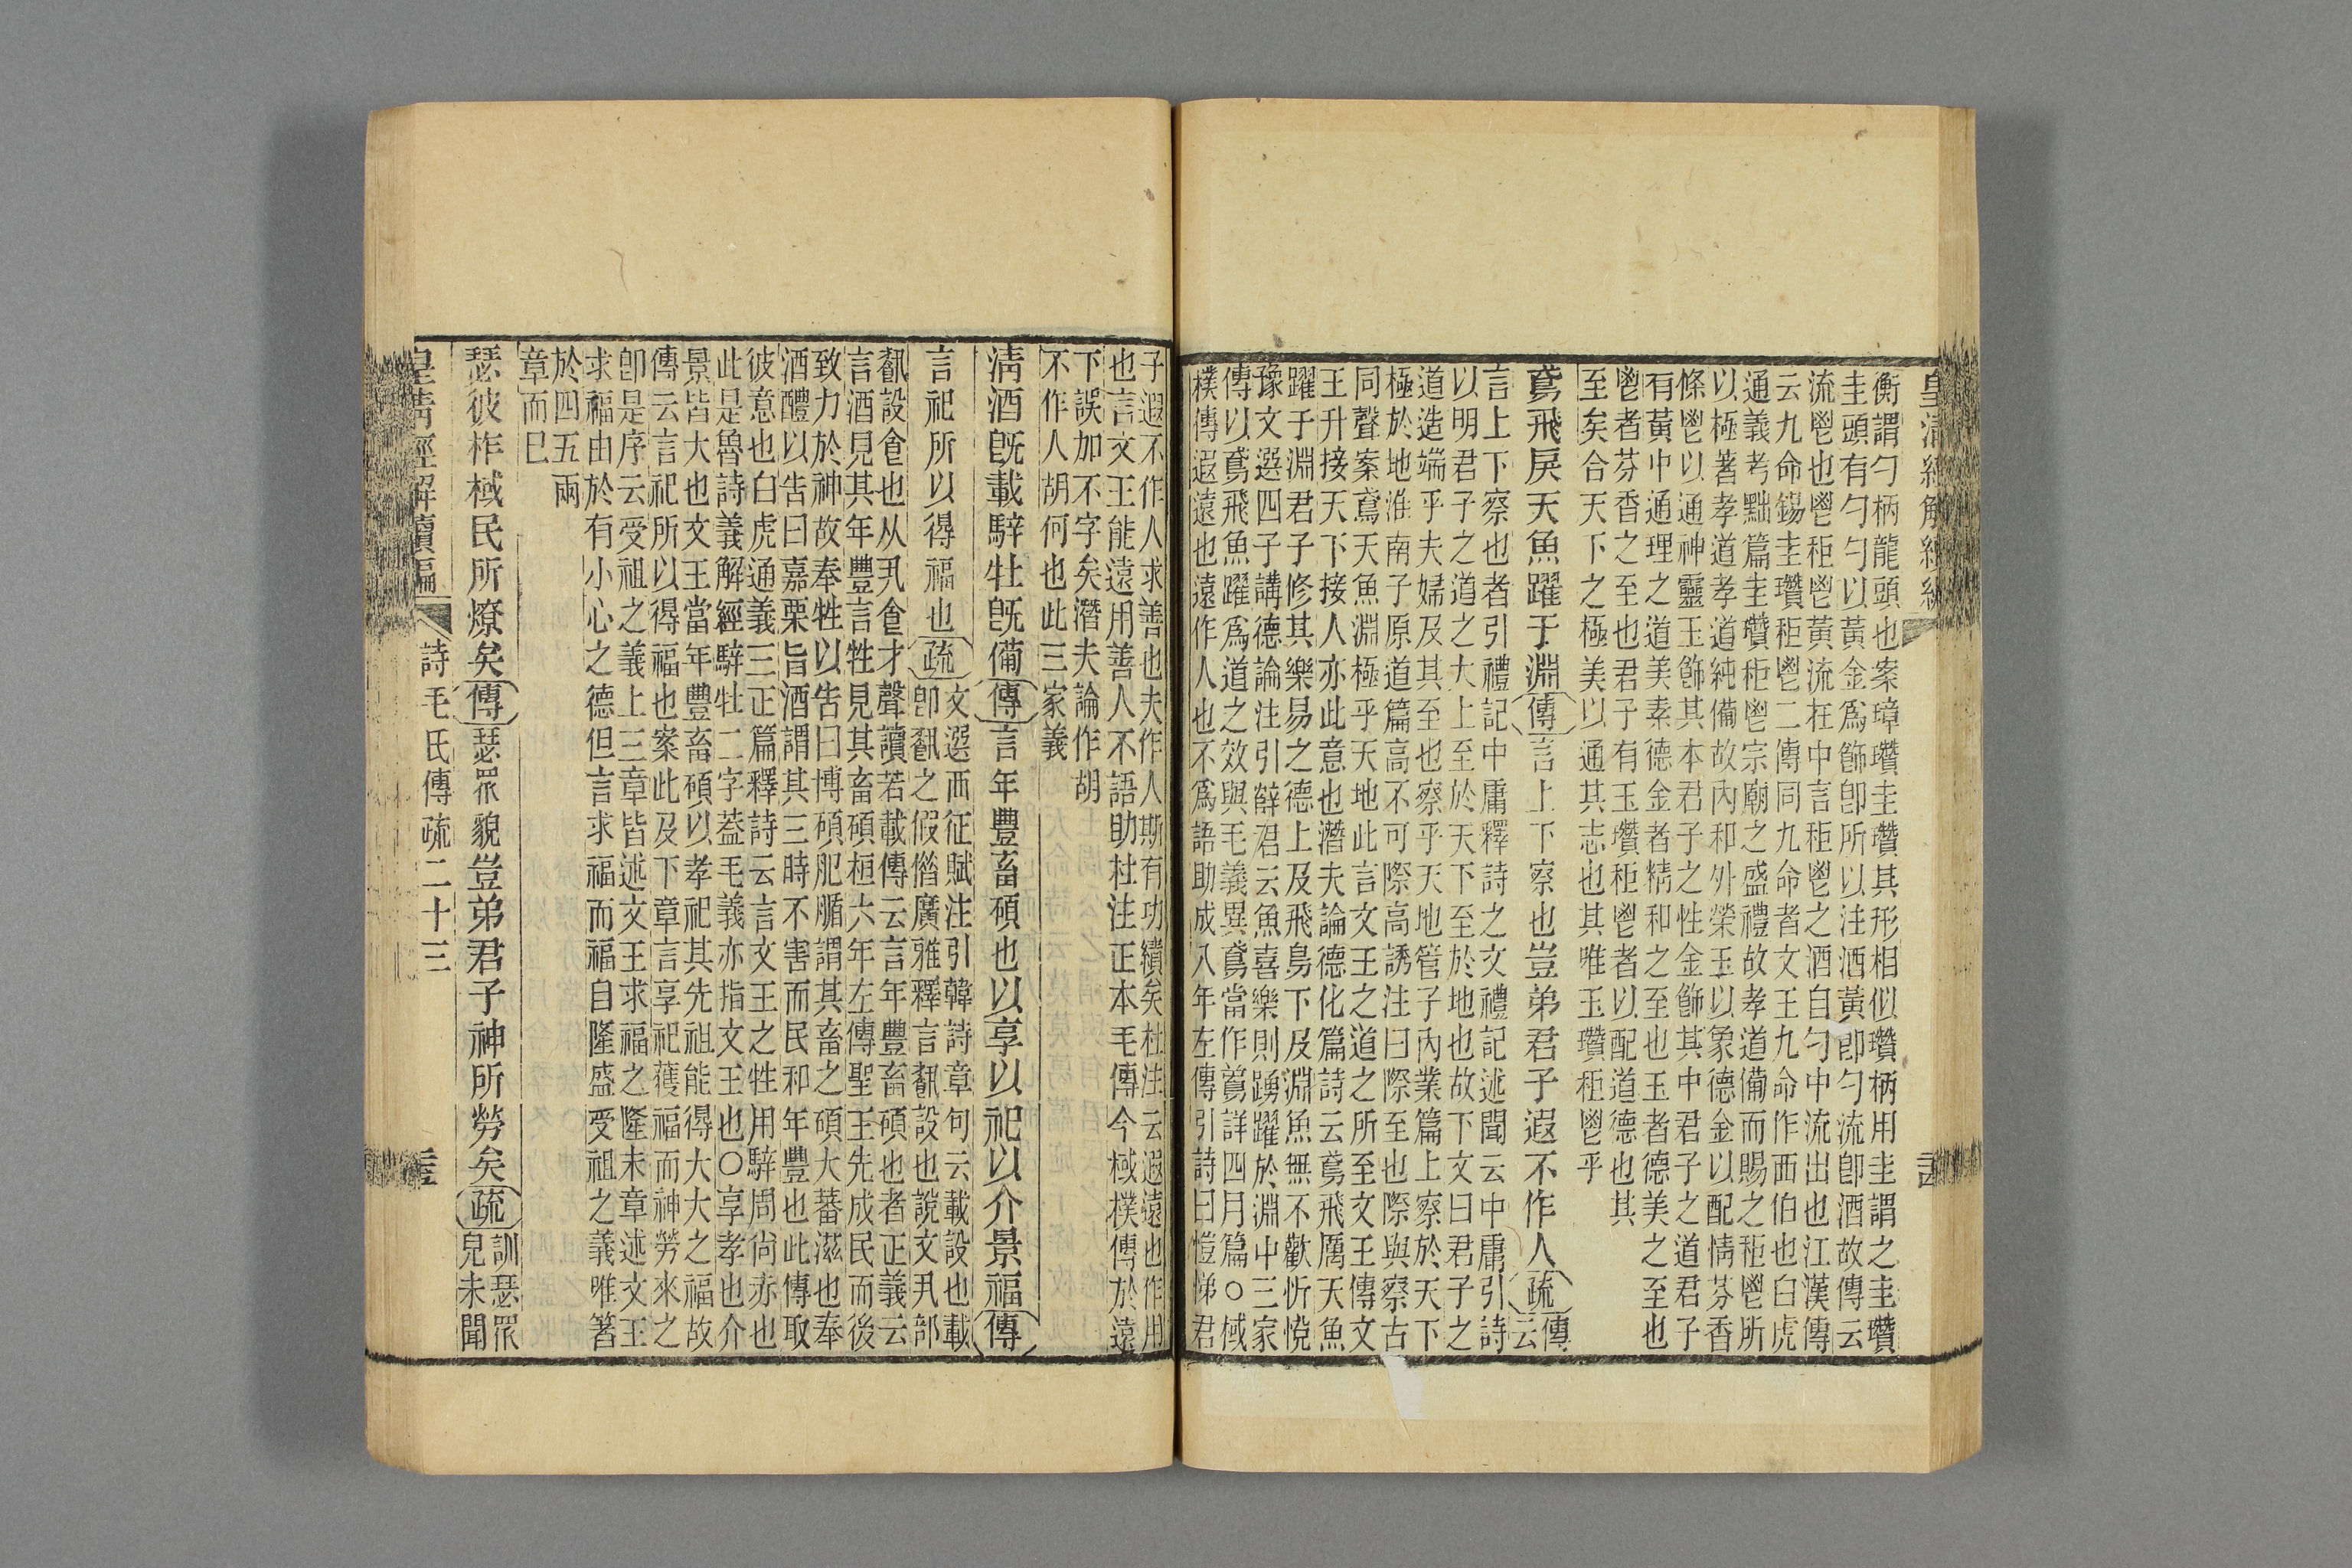 皇清經解續編
衡謂勺柄龍頭也案璋瓚圭瓚其形相似瓚柄用圭謂之圭瓚
圭頭有勺勺以黃金爲飾卽所以注酒黃卽勺流卽酒故傳云
流鬯也鬯秬鬯黃流在中言秬鬯之酒自勺中流出也江漢傳
云九命錫圭瓚秬鬯二傳同九命者文王九命作西伯也白虎
通義考黜篇圭瓚秬鬯宗廟之盛禮故孝道備而賜之秬鬯所
以極著孝道孝道純備故內和外榮玉以象德金以配情芬香
條鬯以通神靈玉飾其本君子之性金飾其中君子之道君子
有黃中通理之道美素德金者精和之至也玉者德美之至也
鬯者芬香之至也君子有玉瓚秬鬯者以配道德也其
至矣合天下之極美以通其志也其唯玉瓚秬鬯乎
鳶飛戾天魚躍于淵傳言上下察也豈弟君子遐不作人疏傳云
言上下察也者引禮記中庸釋詩之文禮記述聞云中庸引詩
以明君子之道之大上至於天下至於地也故下文曰君子之
道造端乎夫婦及其至也察乎天地管子內業篇上察於天下
極於地淮南子原道篇高不可際高誘注曰際至也際與察古
同聲案鳶天魚淵極乎天地此言文王之道之所至文王傳文
王升接天下接人亦此意也潛夫論德化篇詩云鳶飛厲天魚
躍于淵君子修其樂易之德上及飛鳥下及淵魚無不歡忻悅
豫文選四子講德論注引薛君云魚喜樂則踴躍於淵中三家
傳以鳶飛魚躍爲道之效與毛義異鳶當作䳒詳四月篇○棫
樸傳遐遠也遠作人也不爲語助成八年左傳引詩曰愷悌君
子遐不作人求善也夫作人斯有功績矣杜注云遐遠也作用
也言文王能遠用善人不語助杜注正本毛傳今棫樸傳於遠
下誤加不字矣潛夫論作胡
不作人胡何也此三家義
淸酒旣載騂牡旣備傳言年豐畜碩也以享以祀以介景福傳
言祀所以得福也疏文選西征賦注引韓詩章句云載設也載
卽𩛥之假借廣雅釋言𩛥設也說文丮部
𩛥設飠也从丮飠才聲讀若載傳云言年豐畜碩也者正義云
言酒見其年豐言牲見其畜碩桓六年左傳聖王先成民而後
致力於神故奉牲以告曰博碩肥腯謂其畜之碩大蕃滋也奉
酒醴以告曰嘉栗旨酒謂其三時不害而民和年豐也此傳取
彼意也白虎通義三正篇釋詩云言文王之牲用騂周尙赤也
此是魯詩義解經騂牡二字蓋毛義亦指文王也○享孝也介
景皆大也文王當年豐畜碩以孝祀其先祖能得大大之福故
傳云言祀所以得福也案此及下章言享祀獲福而神勞來之
卽是序云受祖之義上三章皆述文王求福之隆末章述文王
求福由於有小心之德但言求福而福自隆盛受祖之義唯箸
於四五兩
章而已
瑟彼柞棫民所燎矣傳瑟眾貌豈弟君子神所勞矣疏訓瑟眾
皃未聞
皇淸經解續編 詩毛氏傳疏二十三